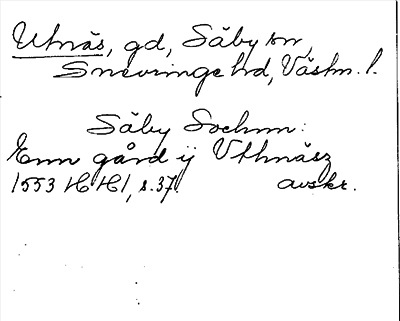 Utnäs, gd, Säby sn,
Snevringe hd, Västm. l.
Säby Sochnn:
Enn gård ij Vthnäsz
1553 HH1, s.37. avskr.